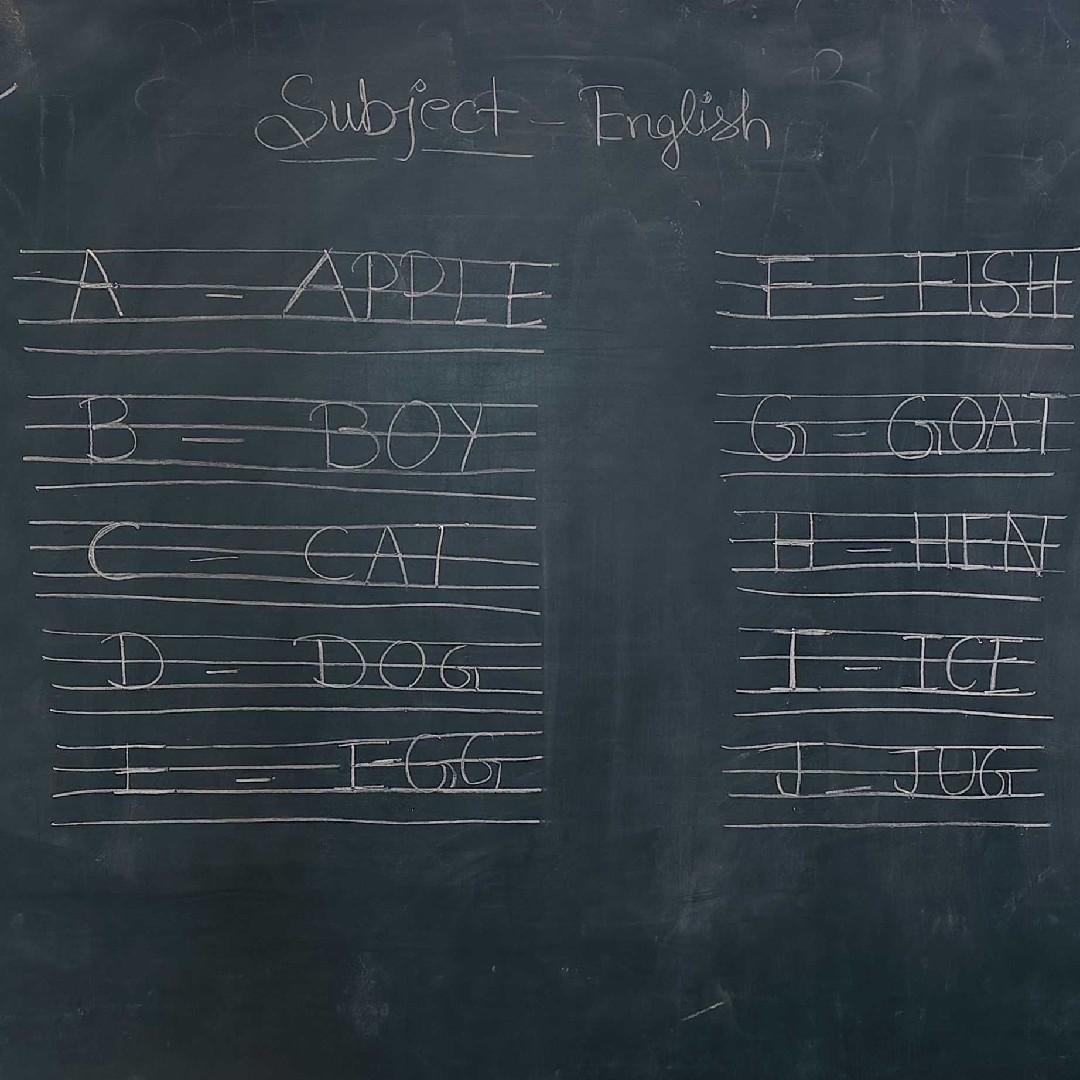 Subject - English
A - APPLE
B - BOY
C - CAT
D - DOG
E - EGG
F - FISH
G - GOAT
H - HEN
I - ICE
J - JUG